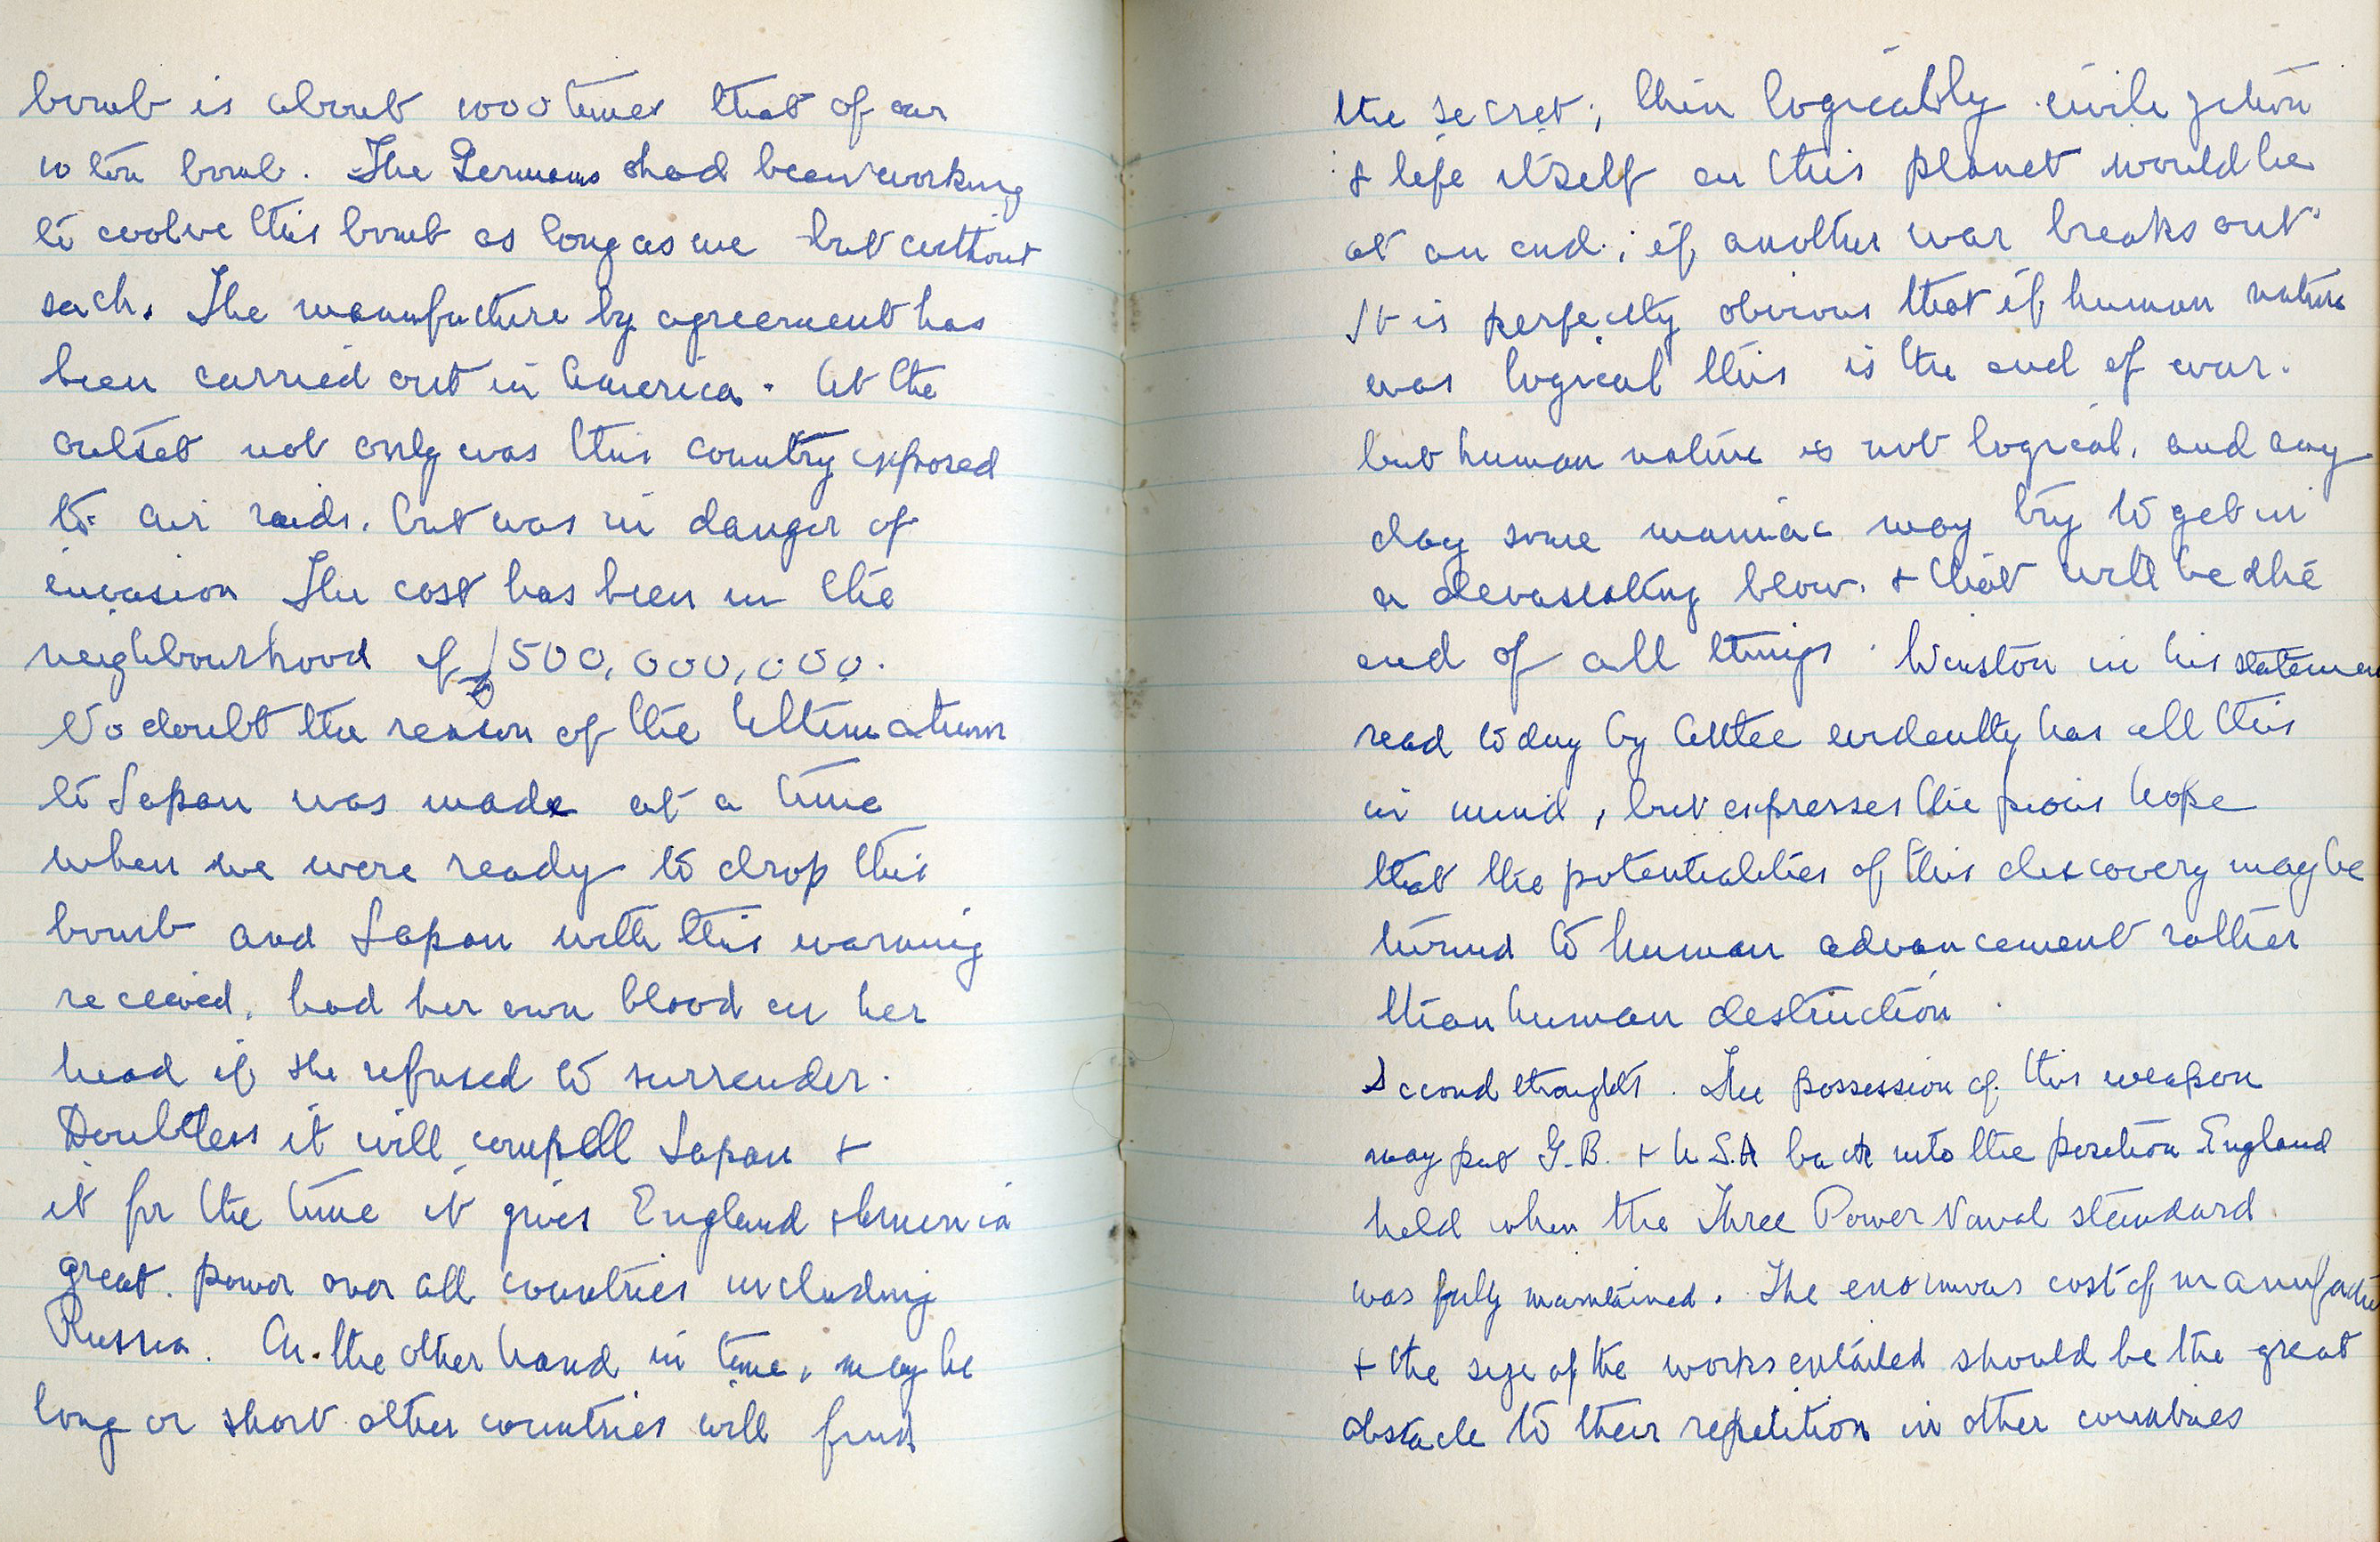 bomb is about 1000 times that of our
10 ton bomb. The Germans had been working
to evolve this bomb as long as we but without
such. The manufacture by agreement has
been carried out in America. At the
outset not only was this country exposed
to air raids, but was in danger of
invasion The cost has been in the
neighbourhood of £500,000,000.
No doubt the reason of the Ultimatum
to Japan was made at a time
when we were ready to drop this
bomb and Japan with this warning
received, had her own blood on her
head if she refused to surrender.
Doubtless it will compell Japan &
it for the time it gives England & America
great power over all countries including
Russia. On the other hand in time, may be
long or short other countries will find
the secret; then logically civilization
& life itself on this planet would be
at an end; if another war breaks out
It is perfectly obvious that if human nature
was logical this is the end of war.
but human nature is not logical, and any
day some maniac may try to get in
a devastating blow. & that will be the
end of all things. Winston in his statemen
read today by Attlee evidently has all this
in mind, but expresses the pious hope
that the potentialities of this discovery may be
turned to human advancement rather
than human destruction.
Second thoughts. The possession of this weapon
may put G.B. & U.S.A back into the position England
held when the Three Power Naval standard
was fully maintained. The enormous cost of manufactu
& the size of the works entailed should be the great
obstacle to their repetition in other countries